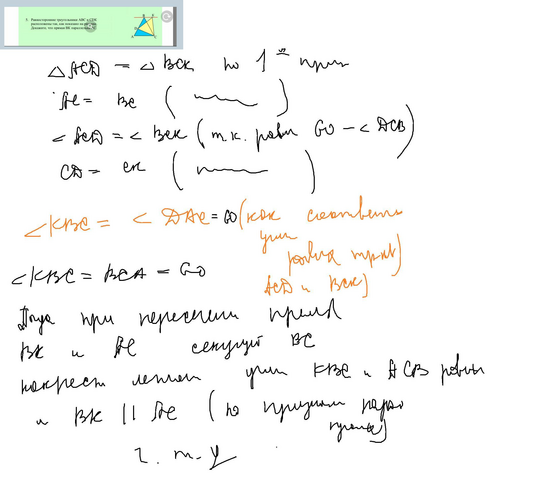 5. Равносторонние треугольники ABC и CDK
расположены так, как показано на рисунке.
Докажите, что прямая BK параллельна AC
△ACD = △BCK по 1му приз
AC = BC ( )
∠ACD = ∠BCK (т.к. равны 60 - ∠DCB)
CD = CK ( )
∠KBC = ∠DAC = 60 (как соответств
углы
равных треуг)
ACD и BCK)
∠KBC = BCA = 60
Тогда при пересечении прямых
BK и AC секущей BC
накрест лежащ углы KBC и ACB равны
и BK || AC (по признаку парал
прямых)
ч. т. д